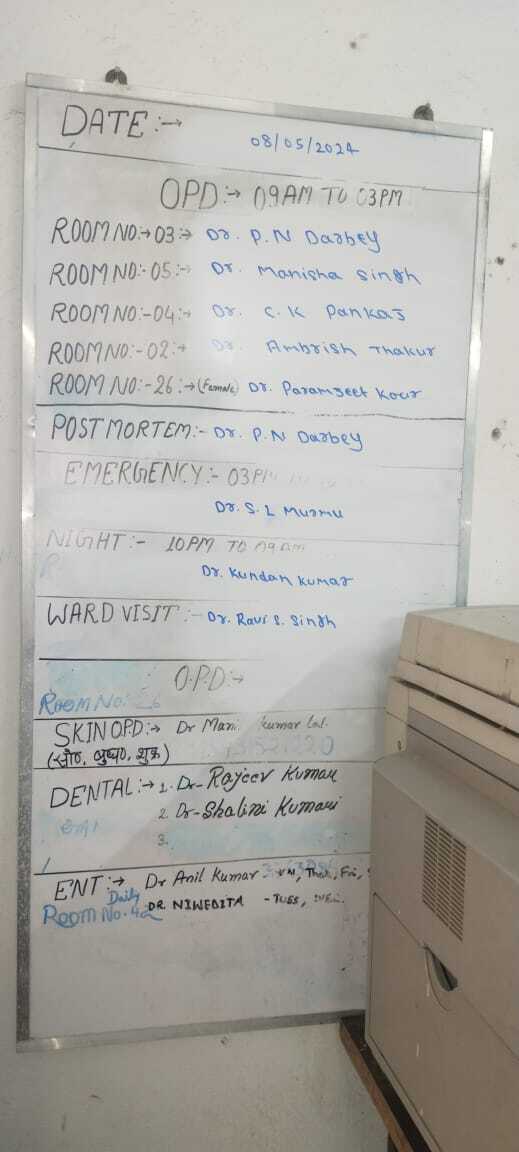 DATE :→ 08/05/2024
OPD:→ 09AM TO 03PM
ROOM NO:→03:→ Dr. P.N Darbey
ROOM NO:-05:→ Dr. Manisha Singh
ROOM NO:-04:→ Dr. C.K Pankaj
ROOM NO:-02:→ Dr. Ambrish Thakur
ROOM NO:-26:→(Female) Dr. Paramjeet Kour
POSTMORTEM:- Dr. P.N Darbey
EMERGENCY:- 03PM
Dr. S.L Murmu
NIGHT:- 10PM TO 09AM
Dr. Kundan Kumar
WARD VISIT:- Dr. Ravi S. Singh
O.P.D:→
Room No: 26
SKIN OPD:→ Dr Mani kumar lal.
(सोम, बुध, शुक्र)
DENTAL:→ 1. Dr- Rajeev Kumar
2. Dr-Shalini Kumari
3.
ENT:→ Dr Anil Kumar Fri,
Daily DR. NIWEDITA - TUES,
Room No. 42